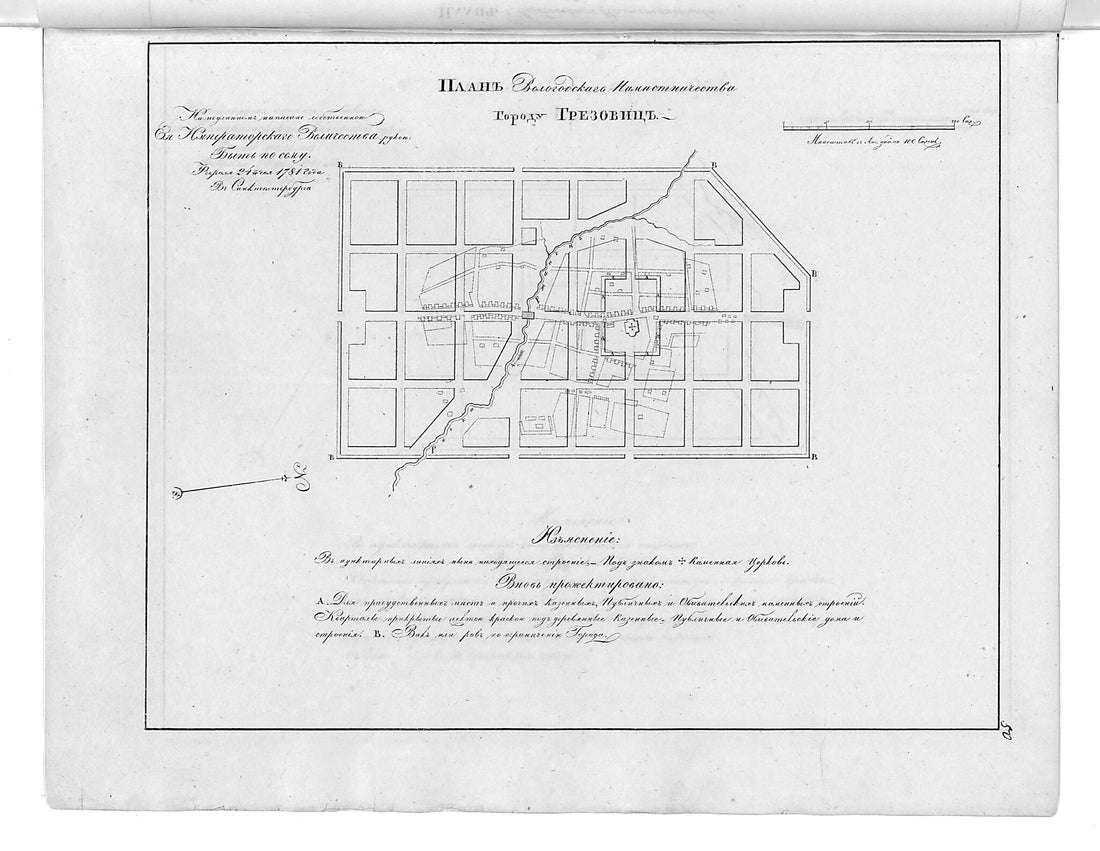 Планъ Вологодскаго Намѣстничества
Городу Трезовицъ.
На подлинномъ написано собственною
Ея Императорскаго Величества рукою:
Быть по сему.
24 1781 года
Въ Санктпетербургѣ
Масштабъ въ Аглъ: дюймѣ 100 Сажень
B
B
B
B
B
N
S
Изъясненіе:
Въ пунктирныхъ линіяхъ нынѣ находящееся строеніе. Подъ знакомъ ✢ Каменная Церковь.
Вновь прожектировано:
А. Для присудственныхъ мѣстъ и прочихъ казенныхъ, Публичныхъ и Обывательскихъ каменныхъ строеній.
Кварталы прикрытые краскою подъ деревянные Казенные, Публичные и Обывательскіе дома и
строенія. В. Валъ или ровъ ко ограниченію Города.